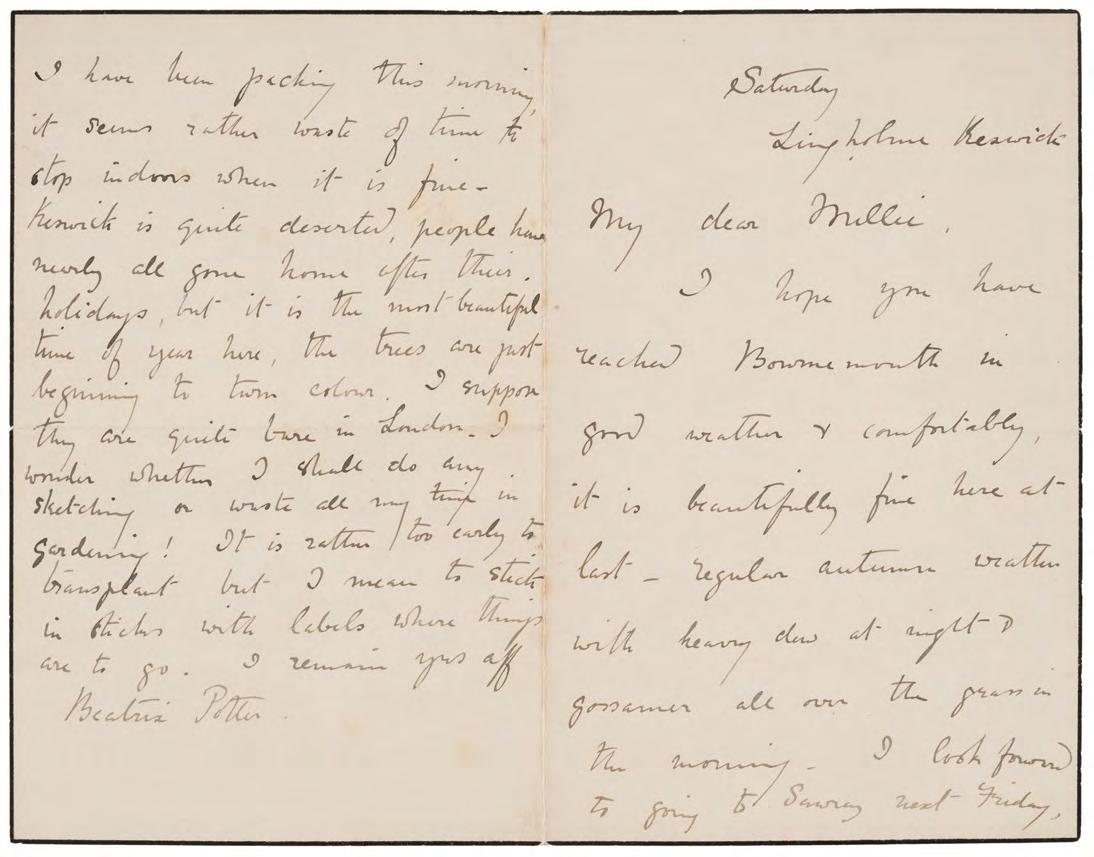 Saturday
Lingholme Keswick
My dear Millie,
I hope you have
reached Bournemouth in
good weather & comfortably,
it is beautifully fine here at
last - regular autumn weather
with heavy dew at night &
gossamer all over the grass in
the morning - I look forward
to going to Sawrey next Friday,
I have been packing this morning,
it seems rather waste of time to
stop indoors when it is fine -
Keswick is quite deserted, people have
nearly all gone home after their
holidays, but it is the most beautiful
time of year here, the trees are just
beginning to turn colour. I suppose
they are quite bare in London. I
wonder whether I shall do any
sketching or waste all my time in
gardening! It is rather too early to
transplant but I mean to stick
in sticks with labels where things
are to go. I remain yrs aff
Beatrix Potter.